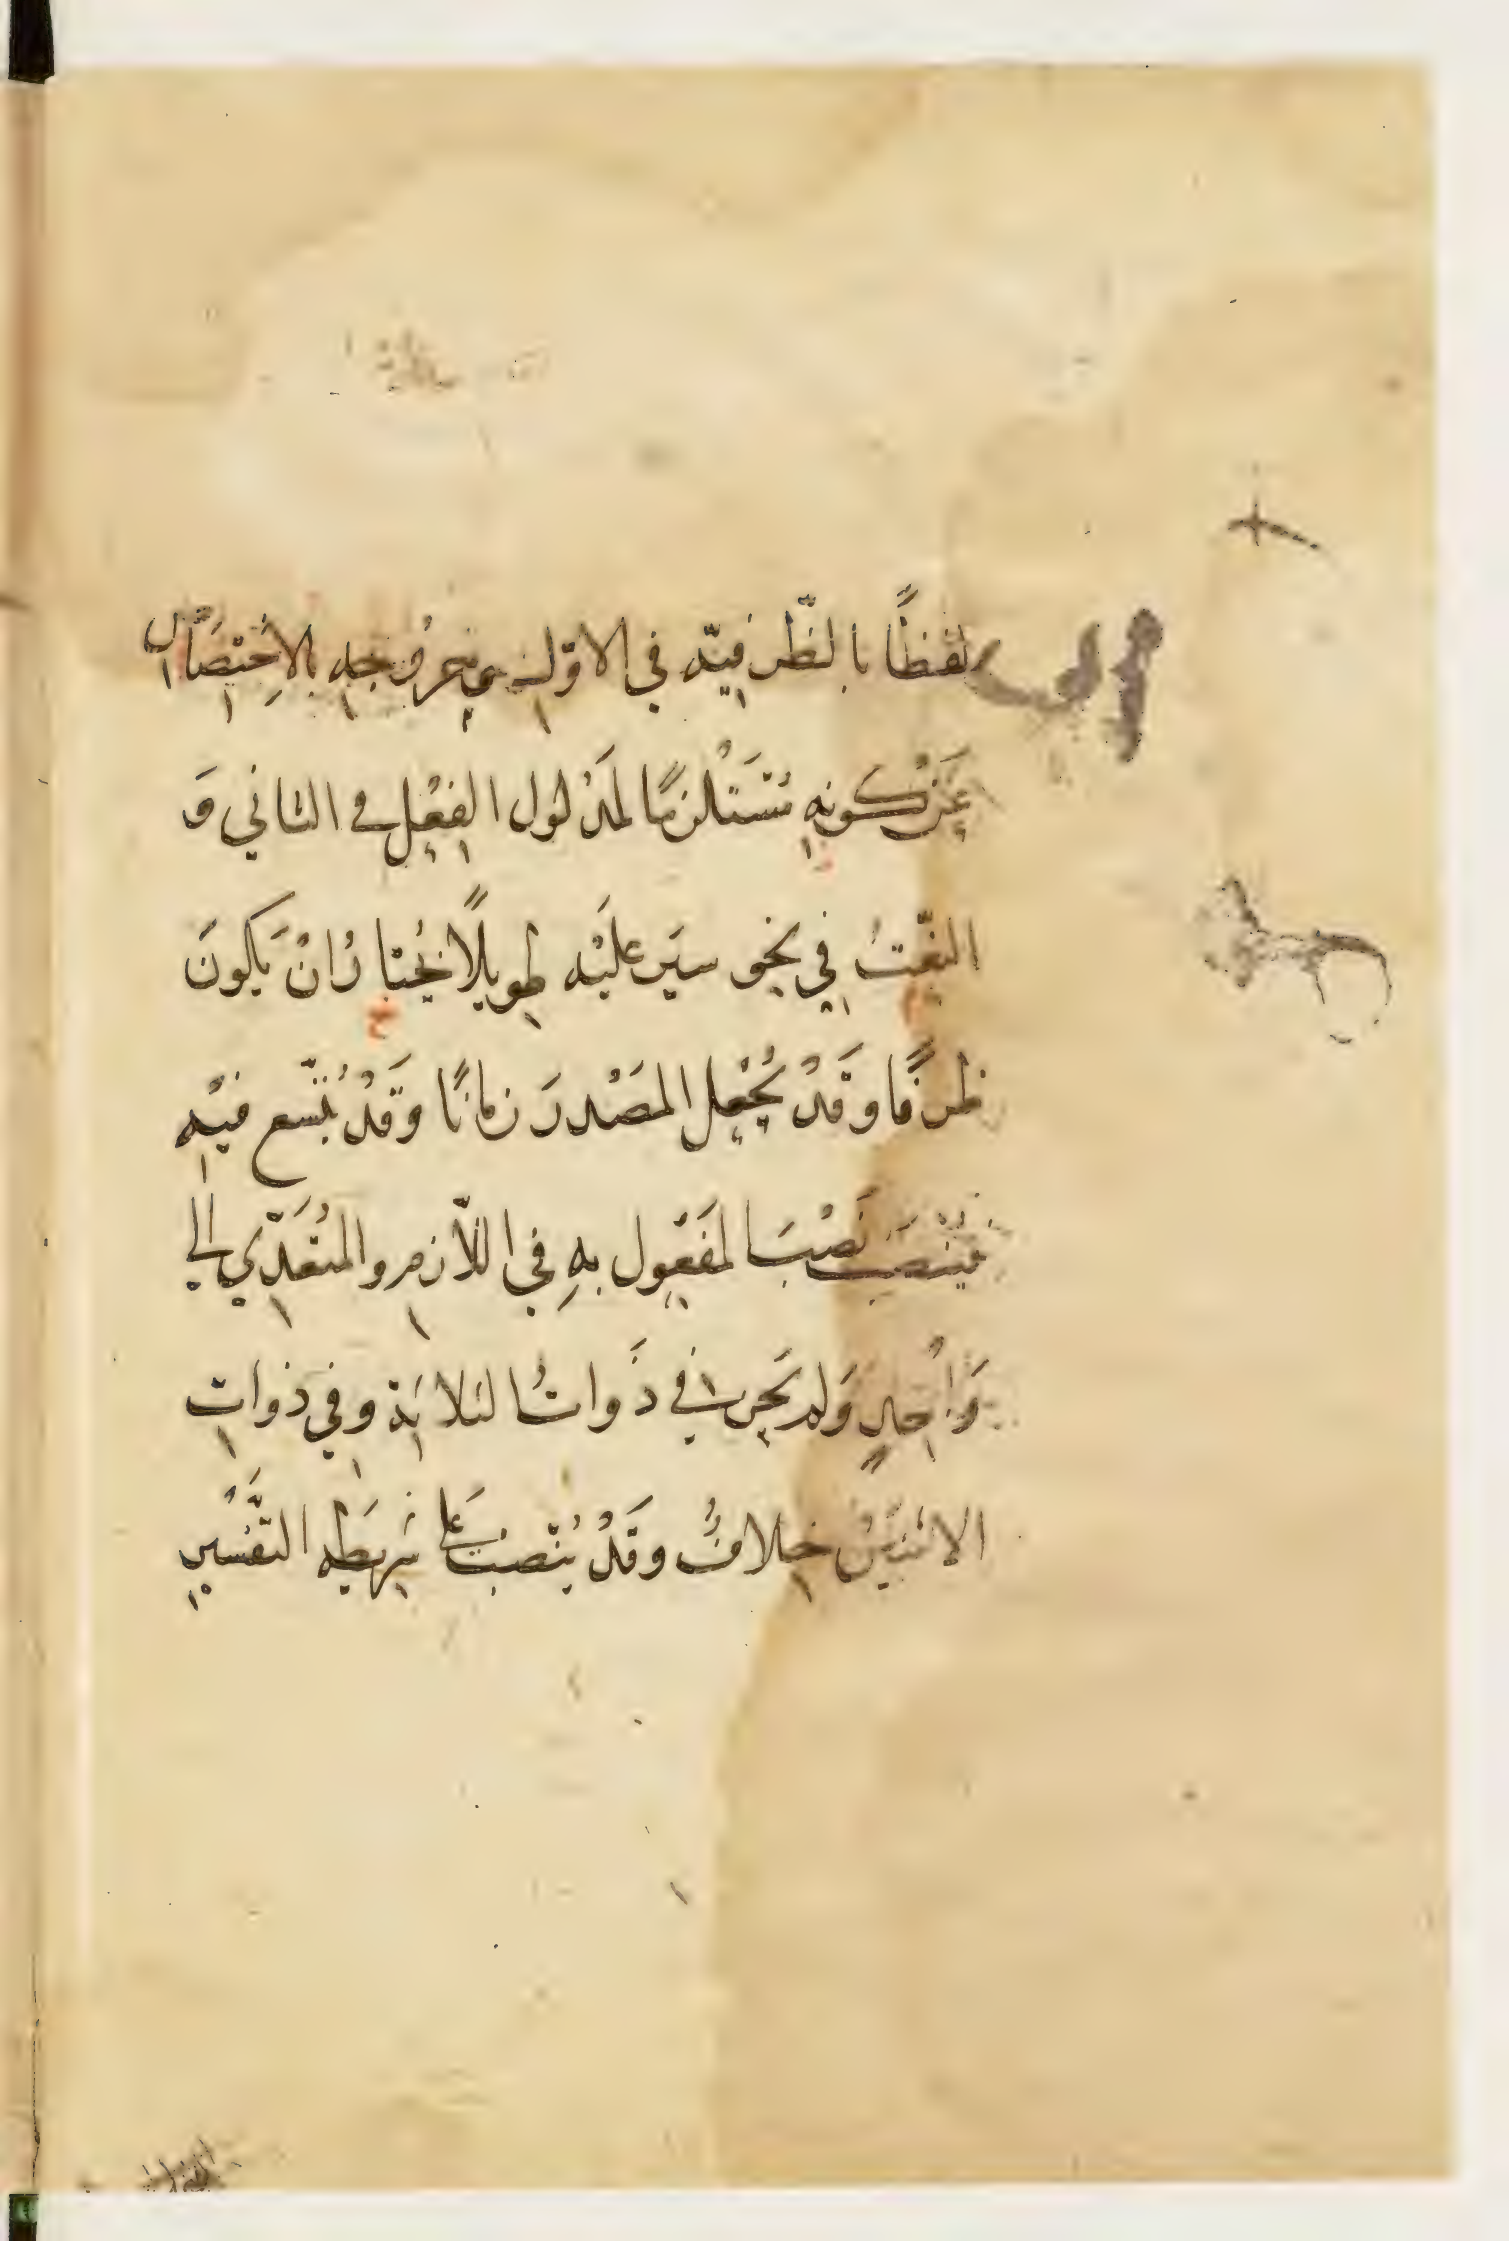 لفظًا بالظرفيّه في الاوّل و بحروجه بالاِختصَاص
عَنْ كونهِ مُسْتَلْزمًا لمَدْلول الفِعْلِ في الثاني وَ
النّعْتُ في نحو سيَر عليْه طويلًا يُختارُ انْ يَكونَ
ظرفًا وقَدْ يُجْعل المصْدرَ زمانًا وقَدْ يُتّسع فيْهِ
فينْصَبُ نَصْبَ المفَعْول بهِ في اللّازم والمُتَعَدّي الى
وَاحِدٍ وَلم يَجر في ذَواتُ الثلاثة وفي ذواتِ
الاثنيَنْ خِلافٌ وقَدْ يُنْصب عَلى شَرِيطَهِ التّفْسِيرِ